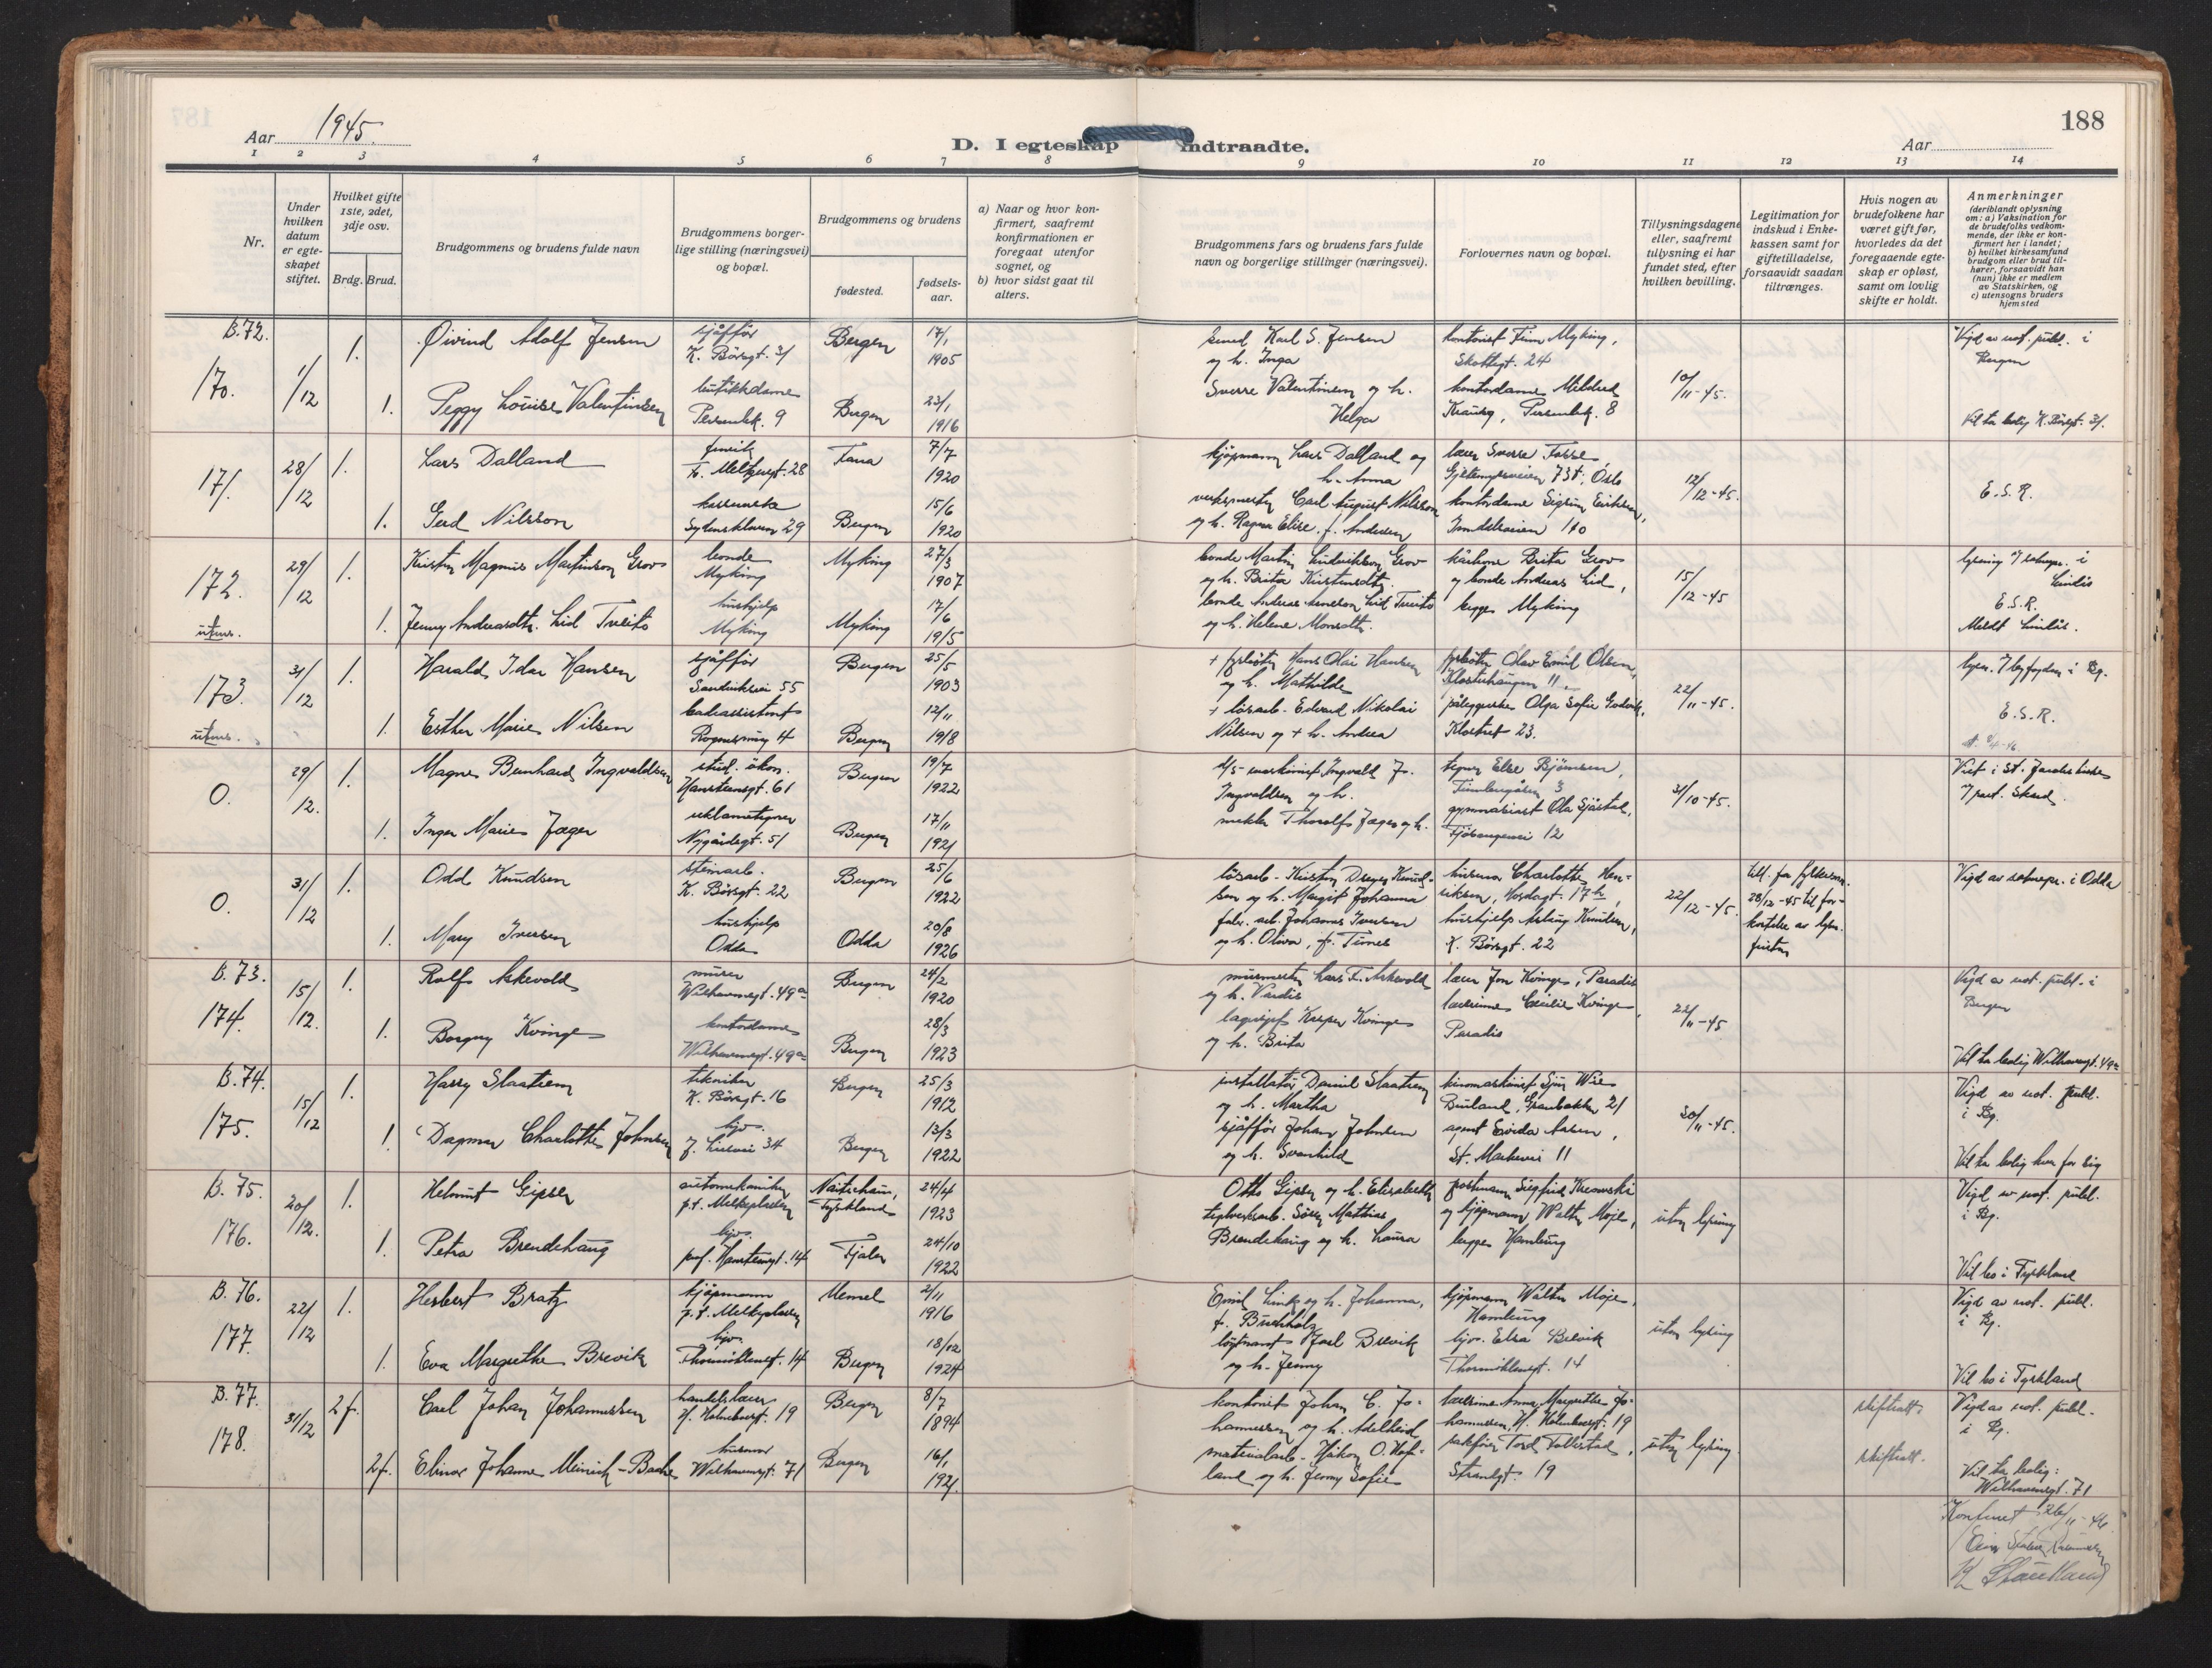 188
Aar 1945.
D. I egteskap indtraadte.
Aar
1 2 3 4 5 6 7 8 9 10 11 12 13 14
Nr.
Under hvilken datum er egteskapet stiftet.
Hvilket gifte 1ste, 2det, 3dje osv.
Brdg. Brud.
Brudgommens og brudens fulde navn
Brudgommens borgerlige stilling (næringsvei) og bopæl.
Brudgommens og brudens
fødested.
fødselsaar.
a) Naar og hvor konfirmert, saafremt konfirmationen er foregaat utenfor sognet, og
b) hvor sidst gaat til alters.
Brudgommens fars og brudens fars fulde navn og borgerlige stillinger (næringsvei).
Forlovernes navn og bopæl.
Tillysningsdagene eller, saafremt tillysning ei har fundet sted, efter hvilken bevilling.
Legitimation for indskud i Enkekassen samt for giftetilladelse, forsaavidt saadan tiltrænges.
Hvis nogen av brudefolkene har været gift før, hvorledes da det foregaaende egteskap er opløst, samt om lovlig skifte er holdt.
Anmerkninger
(deriblandt oplysning om: a) Vaksination for de brudefolks vedkommende, der ikke er konfirmert her i landet; b) hvilket kirkesamfund brudgom eller brud tilhører, forsaavidt han (hun) ikke er medlem av Statskirken, og c) utensogns bruders hjemsted
B.72.
170. 1/12 1. Øivind Adolf Jensen sjåffør K. Børsgt. 31 Bergen 17/1 1905
smed Karl S. Jensen og h. Inga
kontorist Finn Myking, Skottegt. 24
10/11-45.
Vigd av not. publ. i Bergen
1. Peggy Louise Valentinsen butikkdame 9 Bergen 23/1 1916
Sverre Valentinsen og h. Helga
kontordame Mildred 8
Vil ta bolig K. Børsgt. 31.
171. 28/12 1. Lars Dalland fenrik F. Meltzersgt. 28 Fana 7/7 1920
kjøpmann Lars Dalland og h. Anna
lærer Sverre Fosse, Oslo
12/12-45.
E.S.R.
1. Gerd Nilsson 29 Bergen 15/6 1920
verksmester Carl August Nilsson og h. Ragna Elise f. Andersen
kontordame Sigrun Eriksen, 110
172. utens. 29/12 1. Kristen Magnus Martinson Grov bonde Myking Myking 27/3 1907
bonde Martin Ludvikson Grov og h. Brita Kristensdtr.
kårkone Brita Grov og bonde Andreas Lid, begge Myking
15/12-45
lysning i Lindås
E.S.R.
Meldt Lindås.
1. Jenny Andreasdtr. Lid Tveito hushjelp Myking Myking 17/6 1915
bonde Andreas Lid Tveito og h. Helene Monsdtr.
173. utens. 31/12 1. Harald Idar Hansen sjåffør Sandviksvei 55 Bergen 25/5 1903
+ fyrbøter Hans Olai Hansen og h. Mathilde
fyrbøter Olav Emil Olsen, Klosterhaugen 11.
22/11-45.
E.S.R.
1. Esther Marie Nilsen badeassistent 4 Bergen 12/11 1918
+ løsarb. Edvard Nikolai Nilsen og + h. Andrea
Olga Sofie Klostret 23.
0. 29/12. 1. Magne Bernhard Ingvaldsen stud. økon. Hansteensgt. 61 Bergen 19/7 1922
maskinist Ingvald Jo. Ingvaldsen og h.
tegner Else Bjørnsen, 3
31/10-45.
Viet i St. Jacobs kirke
1. Inger Marie Jæger reklametegner Nygårdsgt. 51 Bergen 17/11 1921
mekler Thorolf Jæger og h.
gymnasiast Ola Sjåstad, Fjøsangervei 12
0. 31/12 1. Odd Knudsen K. Børsgt. 22 Bergen 25/6 1922
løsarb. Kristen Dreyer Knudsen og h. Margit Johanna
husmor Charlotte Henriksen, 17 h,
22/12-45.
till. fra fylkesm. 28/12-45 til forkortelse av lysn. fristen
Vigd av i Odda
1. Mary Iversen hushjelp Odda Odda 20/8 1926
fabr. arb. Johannes Iversen og h. Oliva,
hushjelp Aslaug Knudsen, K. Børsgt. 22
B.73.
174. 15/12. 1. Rolf Askevold murer Wilhavensgt. 49a Bergen 24/2 1920
murmester Lars F. Askevold og h. Vardis
lærer Jon Kvinge, Paradis
22/11-45
Vigd av not. publ. i Bergen
1. Borgny Kvinge kontordame Wilhavensgt. 49a Bergen 28/3 1923
lagersjef Kasper Kvinge og h. Brita
lærerinne Cecilie Kvinge, Paradis
Vil ta bolig Wilhavensgt. 49a
B.74.
175. 15/12 1. Harry Slaatrem tekniker K. Børsgt. 16 Bergen 25/3 1912
installatør Daniel Slaatrem og h. Martha
kinomaskinist 21
30/11-45.
Vigd av not. publ. i Bg.
1. Dagmar Charlotte Johnsen hjv. 34 Bergen 13/3 1922
sjåffør Johan Johnsen og h. Svanhild
agent St. Markusvei 11
Vil ta bolig hver for sig
B.75.
176. 20/12. 1. Helmut Gipser automekaniker p.t. Melkeplassen Tyskland 24/4 1923
Otto Gipser og h. Elisabeth
postmann Siegfried og kjøpmann Walter Moje, begge Hamburg
uten lysning
Vigd av not. publ. i Bg.
1. Petra Brendehaug hjv. prof. Hansteensgt. 14 Fjaler 24/10 1922
teglverksarb. Søren Mathias Brendehaug og h. Laura
Vil bo i Tyskland
B.76.
177. 22/12 1. Herbert Bratz kjøpmann p.t. Melkeplassen Memel 2/11 1916
Emil og h. Johanna, f. Buchholz
kjøpmann Walter Moje, Hamburg
uten lysning
Vigd av not. publ. i Bg.
1. Eva Margrethe Brevik hjv. Thormøhlensgt. 14 Bergen 18/12 1924
løytnant Joel Brevik og h. Jenny
hjv. Elsa Brevik Thormøhlensgt. 14
Vil bo i Tyskland
B.77.
178. 31/12 2f. Carl Johan Johannessen handelslærer 19 Bergen 8/7 1894
kontorist Johan C. Johannessen og h. Adelheid
lærerinne Anna Margrethe Johannessen, 19
uten lysning.
skiftatt.
Vigd av not. publ. i Bg.
2f. Elinor Johanne Meinich-Bache husmor Wilhavensgt. 71 Bergen 16/1 1921.
materialarb. Håkon O. Hofland og h. Jenny Sofie
sakfører Tord Strandgt. 19
skiftatt.
Vil ta bolig: Wilhavensgt. 71
Konferert 26/11-46.